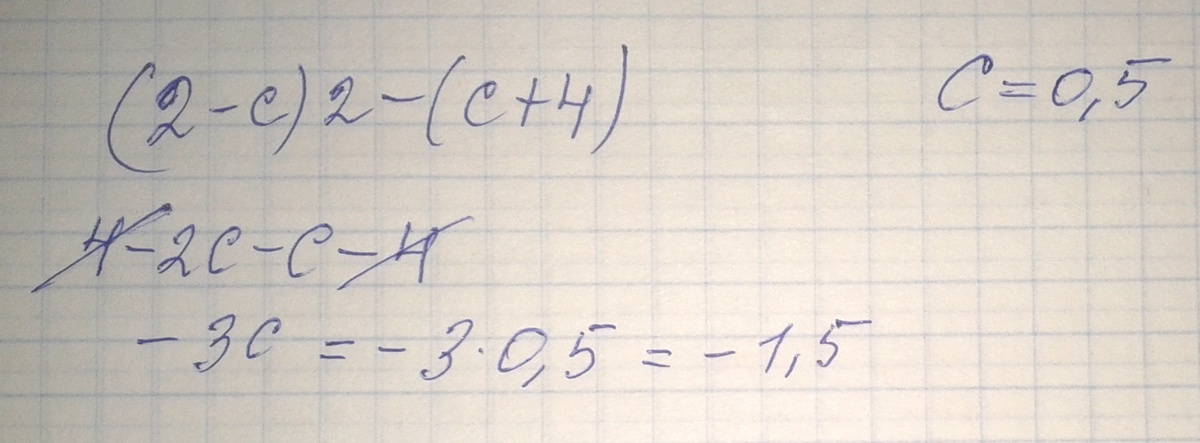 (2-c)2-(c+4) C=0,5
4-2c-c-4
-3c=-3·0,5=-1,5